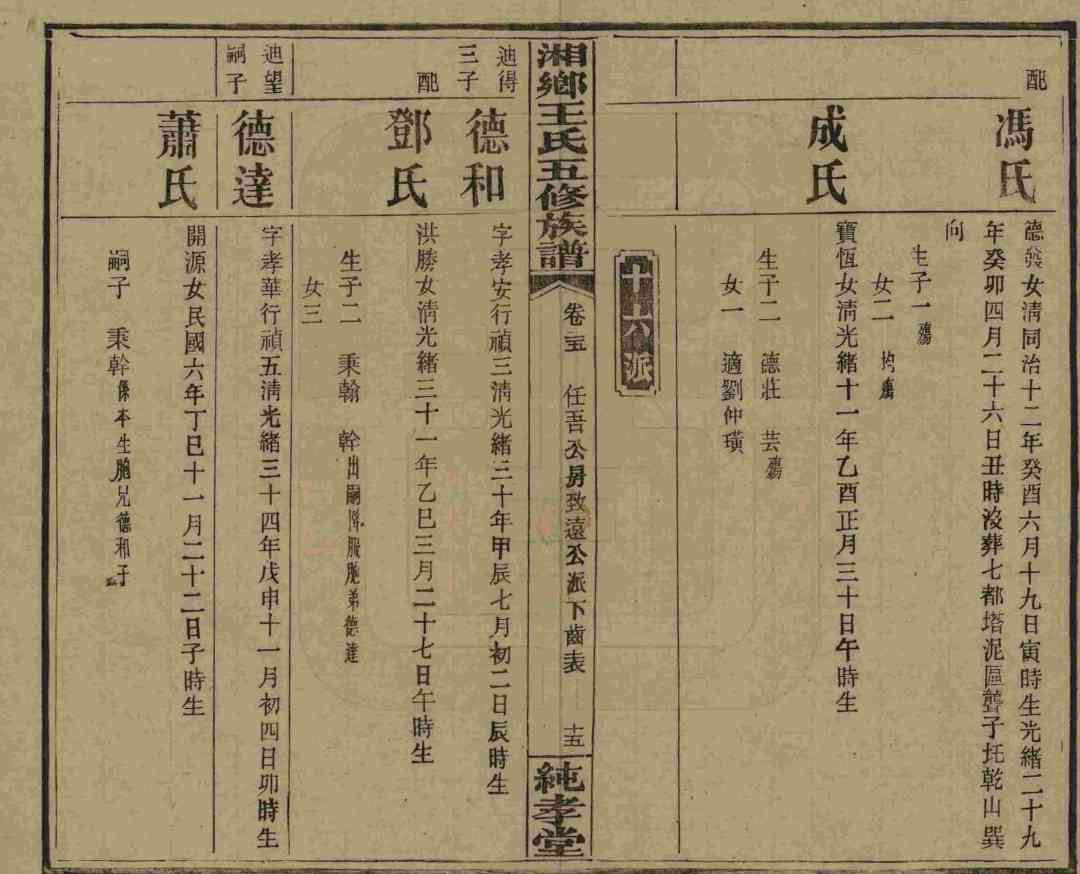 配
馮氏
德發女清同治十二年癸酉六月十九日寅時生光緒二十九
年癸卯四月二十六日丑時沒葬七都塔泥區聾子坵乾山巽
向
生子一殤
女二 均殤
成氏
寶恆女清光緒十一年乙酉正月三十日午時生
生子二 德莊 芸殤
女一 適劉仲璜
十六派
湘鄉王氏五修族譜
卷 任吾公房致遠公派下齒表
純孝堂
迪得
三子
德和
字孝安行禎三清光緒三十年甲辰七月初二日辰時生
配
鄧氏
洪勝女清光緒三十一年乙巳三月二十七日午時生
生子二 秉翰 幹出嗣降服胞弟德達
女三
迪望
嗣子
德達
字孝華行禎五清光緒三十四年戊申十一月初四日卯時生
蕭氏
開源女民國六年丁巳十一月二十二日子時生
嗣子 秉幹係本生胞兄德和子